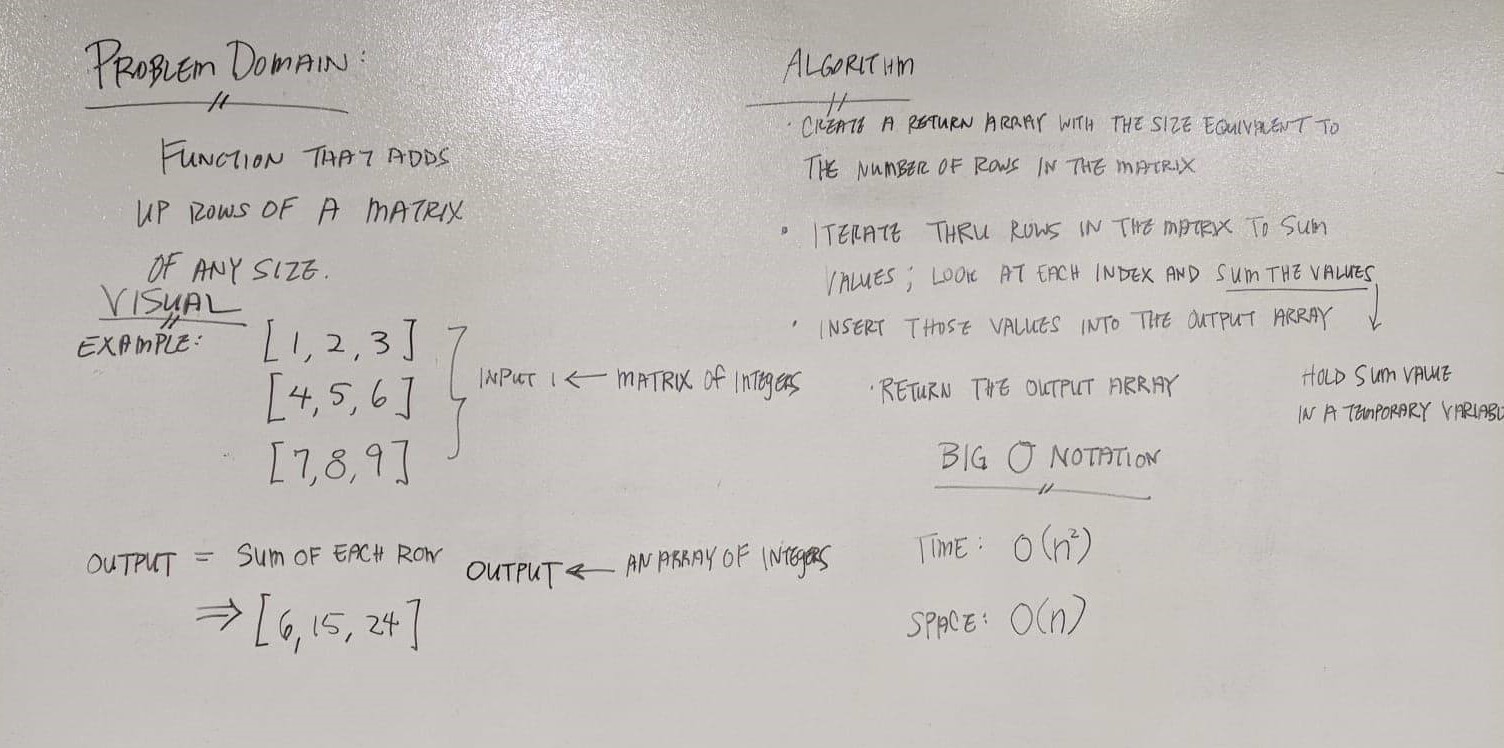 PROBLEM DOMAIN:
FUNCTION THAT ADDS
UP ROWS OF A MATRIX
OF ANY SIZE.
VISUAL
EXAMPLE:
[1, 2, 3]
[4, 5, 6]
[7, 8, 9]
INPUT 1 ← MATRIX OF INTEGERS
OUTPUT = SUM OF EACH ROW
⇒ [6, 15, 24]
OUTPUT ← AN ARRAY OF INTEGERS
ALGORITHM
· CREATE A RETURN ARRAY WITH THE SIZE EQUIVALENT TO
THE NUMBER OF ROWS IN THE MATRIX
• ITERATE THRU ROWS IN THE MATRIX TO SUM
VALUES; LOOK AT EACH INDEX AND SUM THE VALUES
· INSERT THOSE VALUES INTO THE OUTPUT ARRAY ↓
HOLD SUM VALUE
IN A TEMPORARY VARIABL
· RETURN THE OUTPUT ARRAY
BIG O NOTATION
TIME: O(n²)
SPACE: O(n)